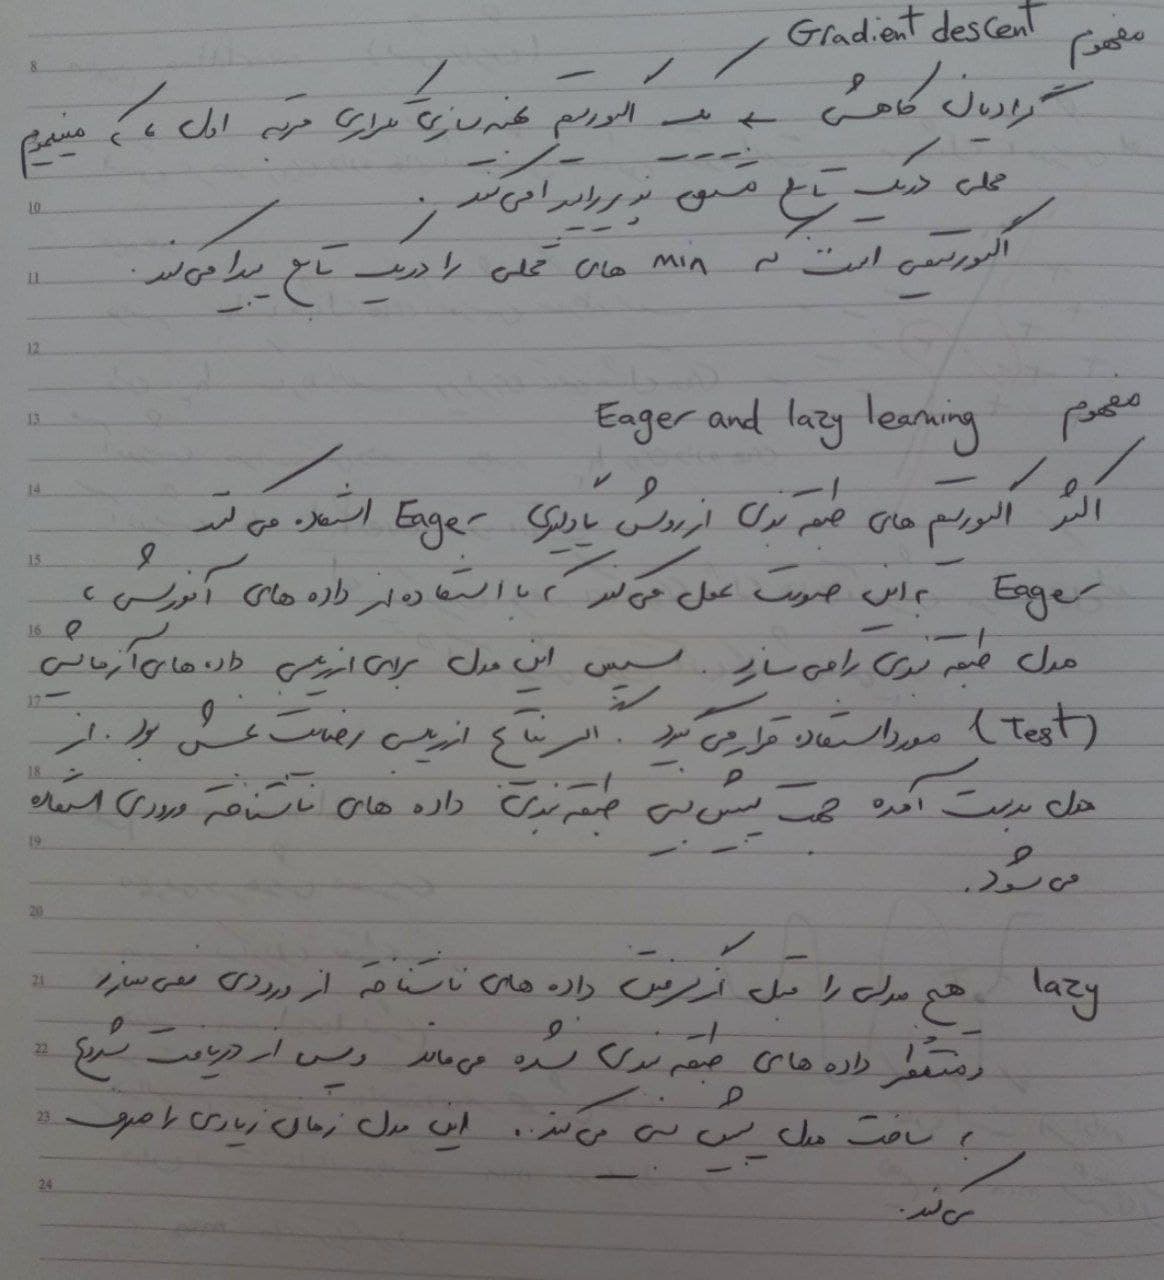 مفهوم Gradient descent
گرادیان کاهشی ← یک الگوریتم بهینه سازی تکراری مرتبه اول که مینیموم
محلی در یک تابع مشتق پذیر را پیدا می کند.
الگوریتمی است که min های محلی را در یک تابع پیدا می کند.
مفهوم Eager and lazy learning
اکثر الگوریتم های طبقه بندی از روش یادگیری Eager استفاده می کنند
Eager به این صورت عمل می کند که با استفاده از داده های آموزشی،
مدل طبقه بندی را می سازد. سپس این مدل برای ارزیابی داده های آزمایشی
(Test) مورد استفاده قرار می گیرد. اگر نتایج ارزیابی رضایت بخش بود. از
مدل بدست آمده جهت پیش بینی طبقه بندی داده های ناشناخته ورودی استفاده
می شود.
lazy هیچ مدلی را قبل از گرفتن داده های ناشناخته از ورودی نمی سازد
و منتظر داده های طبقه بندی نشده می ماند و پس از دریافت شروع
به ساخت مدل پیش بینی می کند. این مدل زمان زیادی را صرف
می کند.
8
10
11
12
13
14
15
16
17
18
19
20
21
22
23
24